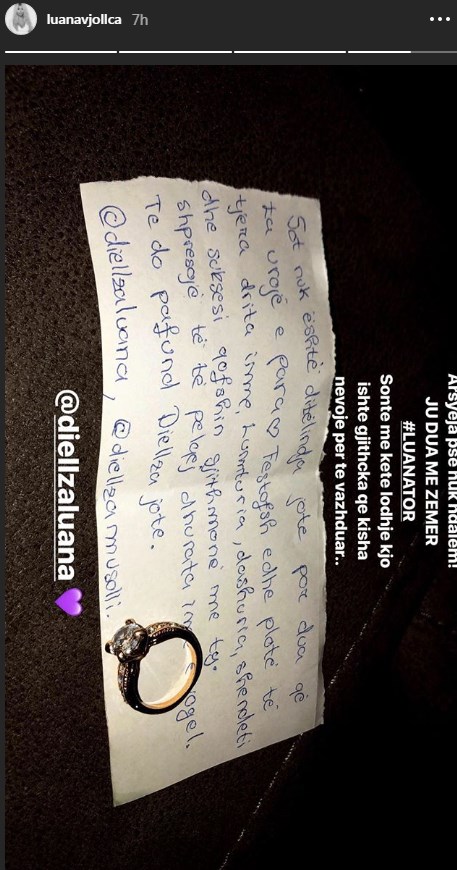 luanavjollca 7h
Arsyeja pse nuk ndalem!
JU DUA ME ZEMER
#LUANATOR
Sonte me kete lodhje kjo
ishte gjithcka qe kisha
nevoje per te vazhduar..
Sot nuk është ditëlindja jote por dua që
ta uroje e para♡ Festofsh edhe plotë të
tjera drita ime, Lumturia, dashuria, shëndeti
dhe suksesi qofshin gjithmonë me ty.
shpresojë të të pelqej dhurata ime e vogel.
Te do pafund Diellza jote.
@diellzaluana, @diellzamusolli.
@diellzaluana 💜